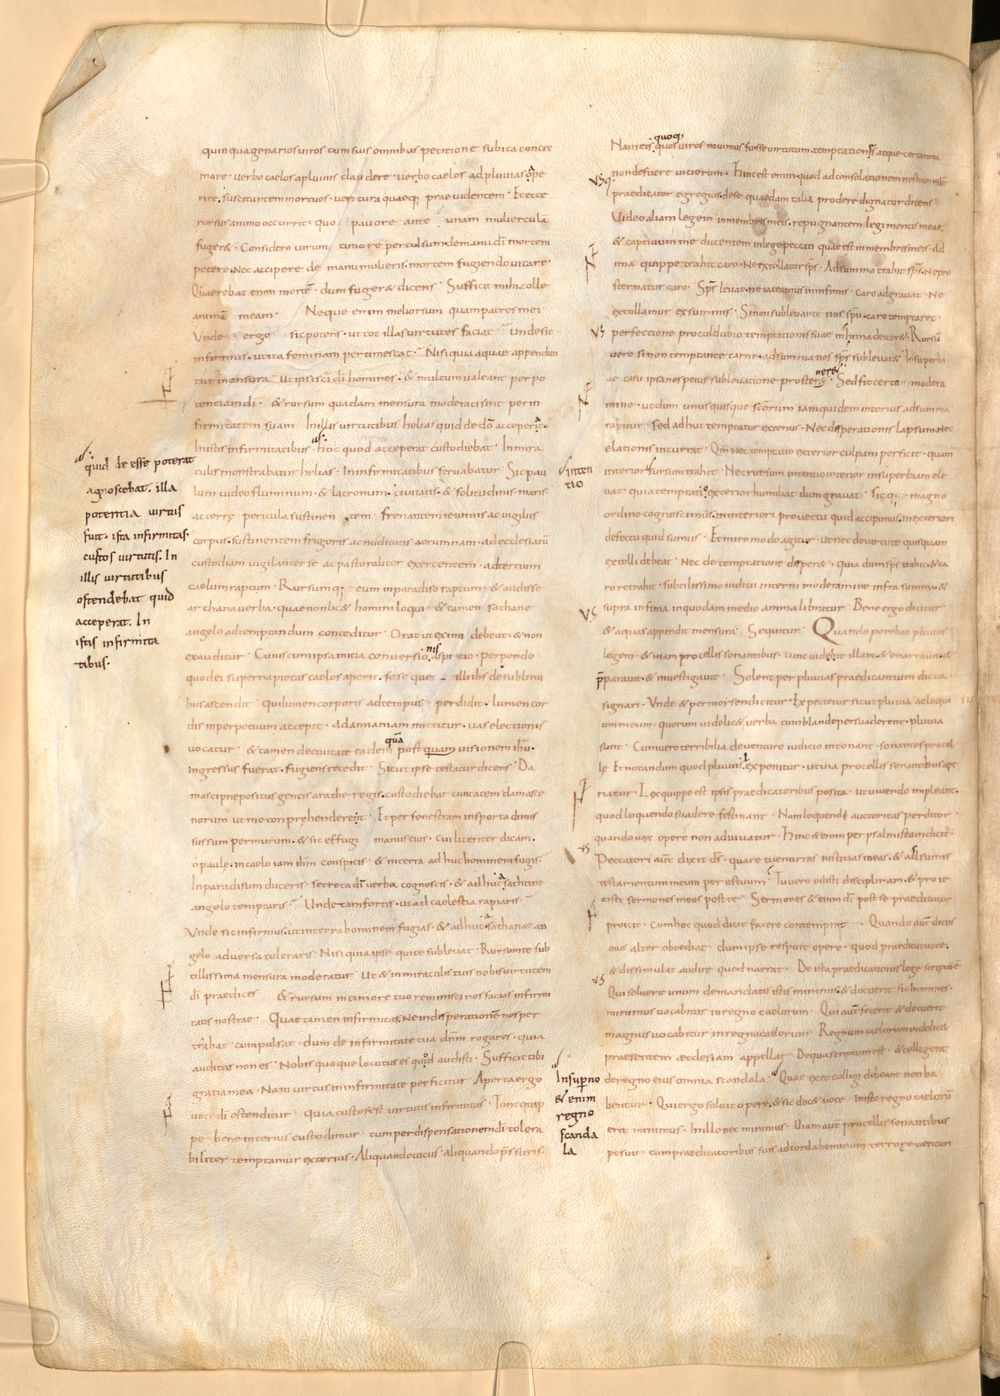 quinquagenarios viros cum suis omnibus petitione subita concre
mare verbo caelos a pluviis claudere verbo caelos ad pluvias ape
rire suscitantem mortuos ventura quaeq; praevidentem Et ecce
rursus animo occurrit quo pavore ante unam muliercula
fuger& Considero virum timore perculsum de manu di mortem
petere Nec accipere de manu mulieris mortem fugiendo vitare
Quaerebat enim morte dum fuger& dicens Sufficit mihi tolle
animā meam Neque enim melior sum quam patres mei
Unde ergo sic potens ut tot illas virtutes faciat Unde sic
infirmus ut ita feminam pertimescat Nisi quia aquae appendun
tur mensura Ut ipsi sci dī homines & multum valeant per po
tentiam di & rursum quadam mensura moderati sint per in
firmitatem suam In illis virtutibus helias quid de dō acceperit
In istis infirmitatibus hoc quod acceperat custodiebat In mira
culis monstrabatur helias In infirmitatibus servabatur Sic pau
lum video fluminum & latronum civitatis & solitudinis maris
ac terrę pericula sustinentem Frenantem ieiuniis ac vigiliis
corpus sustinentem frigoris ac nuditatis aerumnam ad ecclesiarū
custodiam vigilanter se ac pastoraliter exercentem ad tertium
caelum raptum Rursumq; eum in paradiso raptum & audisse
archana verba quae non lic& homini loqui & tamen sathane
angelo ad temptandum conceditur Orat ut eximi debeat & non
exauditur Cuius cum ipsa initia conversionis aspicio perpendo
quod ei superna pietas caelos aperit sese que illi ihs de sublimi
bus ostendit Qui lumen corporis ad tempus perdidit lumen cor
dis in perpetuum accepit Ad annaniam mittitur vas electionis
vocatur & tamen de civitate eadem quā post quam visionem ihū
ingressus fuerat fugiens recedit Sicut ipse testatur dicens Da
masci prepositus gentis arathe regis custodiebat civitatem damasce
norum ut me conprehenderent Et per fenestram in sporta dimis
sus sum per murum & sic effugi manus eius Cui licenter dicam
o paule in caelo iam ihm conspicis & in terra adhuc hominem fugis
In paradisum duceris secreta dī verba cognoscis & adhuc a sathane
angelo temptaris Unde tam fortis ut ad caelestia rapiaris
Unde sic infirmus ut in terra hominem fugias & adhuc a sathanae an
gelo adversa toleraris Nisi quia ipse qui te sublevat Rursum te sub
tillissima mensura moderatur Ut & in miraculis tuis nobis virtutem
di praedices & rursum in timore tuo reminisci nos facias infirmi
tatis nostrae Quae tamen infirmitas Ne in desperationē nos per
trabat cum pulsat dum de infirmitate tua dnm rogares quia
auditus non es Nobis quoque locutus es quod audisti Sufficit tibi
gratia mea Nam virtus in infirmitate perficitur Aperta ergo
voce di ostenditur quia custos est virtutis infirmitas Tunc quip
pe bene interius custodimur cum per dispensationem di tolera
biliter temptamur exterius Aliquando vitiis aliquando pressuris
quid de esse poterat
agnoscebat. illa
potentia virtus
fuit. ista infirmitas
custos virtutis. In
illis virtutibus
ostendebat quid
acceperat. In
istis infirmita
tibus
quoq;
Nam eis quos viros novimus fuisse virtutum temptationes atque certamina
non defuere vitiorum Hinc est enim quod ad consolationem nostram idē
praedicator egregius de se quaedam talia prodere dignatur dicens
Video aliam legem in membris meis repugnantem legi mentis meae
& captivum me ducentem in lege peccati quae est in membris meis Ad
ima quippe trahit caro Ne extollat sps Ad summa trahit sps Ne pro
sternatur caro Sps levat ne iaceamus in infimis Caro adgravat Ne
extollamur ex summis Si non sublevante nos spu caro temptaret
perfectione procul dubio temptationis suae in ima deicer& Rursū
vero si non temptante carne ad summa nos sps sublevar& In superbi
ae casu ipsa nos peius sublevatione prosterneret Sed fit certo modera
mine ut dum unusquisque scorum iam quidem interius ad summa
rapitur Sed adhuc temptatur exterius Nec desperationis lapsum Nec
elationis incurrat Qm nec temptatio exterior culpam perficit quam
interior sursum trahit Nec rursum intentio interior in superbiam ele
vat quia temptatio exterior humiliat dum gravat Sicq; magno
ordine cognoscimus in interiori provectu quid accipimus in exteriori
defectu quid sumus Et miro modo agitur ut nec de virtute quisquam
extolli debeat Nec de temptatione disper& Quia dum sps trahit & ca
ro retrahit subtilissimo iudicii interni moderamine infra summa &
supra infima in quodam medio anima libratur Bene ergo dicitur
& aquas appendit mensura Sequitur Quando ponebat pluviis
legem & viam procellis sonantibus tunc vidit illam & enarravit &
pparavit & investigavit Solent per pluvias praedicantium dicta
signari Unde & per moisen dicitur Expectetur sicut pluvia aeloqui
um meum quorum videlic& verba cum blande persuaderent pluvia
sunt Cum vero terribilia de venturo iudicio intonant sonantes procel
le Et notandum quod pluviis lex ponitur ut via procellis sonantibus ape
riatur Lex quippe est ipsis praedicatoribus posita ut vivendo impleant
quod loquendo suadere festinant Nam loquendi auctoritas perditur
quando vox opere non adiuvatur Hinc & enim per psalmistam dicit
Peccatori aut dixit ds quare tu enarras iustitias meas & adsumis
testamentum meum per os tuum Tu vero odisti disciplinam & proie
cisti sermones meos post te Sermones & enim di post se praedicator
proicit Cum hoc quod dicit facere contempnit Quando aut dictis
eius alter oboediat dum ipse respuit opere quod praedicat voce
& dissimulat audire quod narrat De ista praedicationis lege scriptū ē
Qui solverit unum de mandatis istis minimis & docuerit sic homines
minimus vocabitur in regno caelorum Qui aut fecerit & docuerit
magnus vocabitur in regno caelorum Regnum caelorum videlic&
praesentem aecclesiam appellat De qua scriptum est & colligent
de regno eius omnia scandala Quae ex eo colligi debeant non ha
bentur Qui ergo solvit opere & sic doc& voce In isto regno caelorū
erit minimus In illo nec minimus Viam aut procellis sonantibus
posuit cum praedicatoribus suis ad corda hominum terrore venturi
inten
tio
Insuperno
& enim
regno
scanda
la